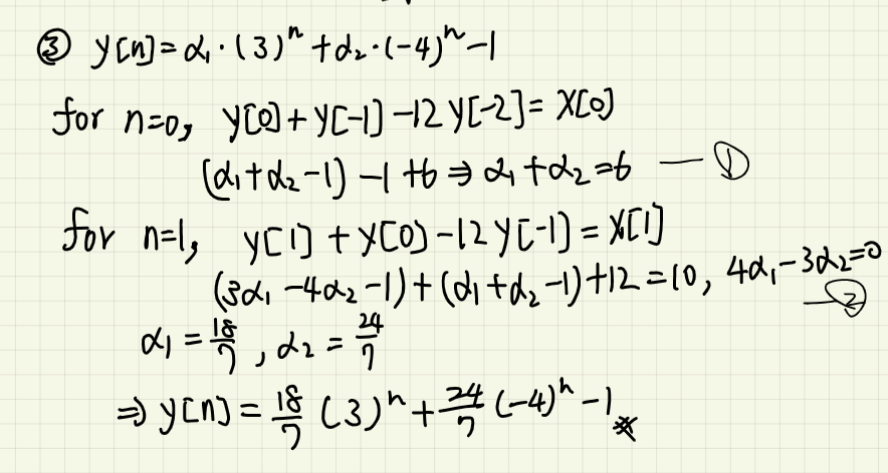 ③ y[n] = α₁·(3)ⁿ + α₂·(-4)ⁿ - 1
for n=0, y[0] + y[-1] - 12y[-2] = x[0]
(α₁ + α₂ - 1) - 1 + 6 ⇒ α₁ + α₂ = 6 — ①
for n=1, y[1] + y[0] - 12y[-1] = x[1]
(3α₁ - 4α₂ - 1) + (α₁ + α₂ - 1) + 12 = 10, 4α₁ - 3α₂ = 0 — ②
α₁ = 18/7, α₂ = 24/7
⇒ y[n] = 18/7 (3)ⁿ + 24/7 (-4)ⁿ - 1 ※